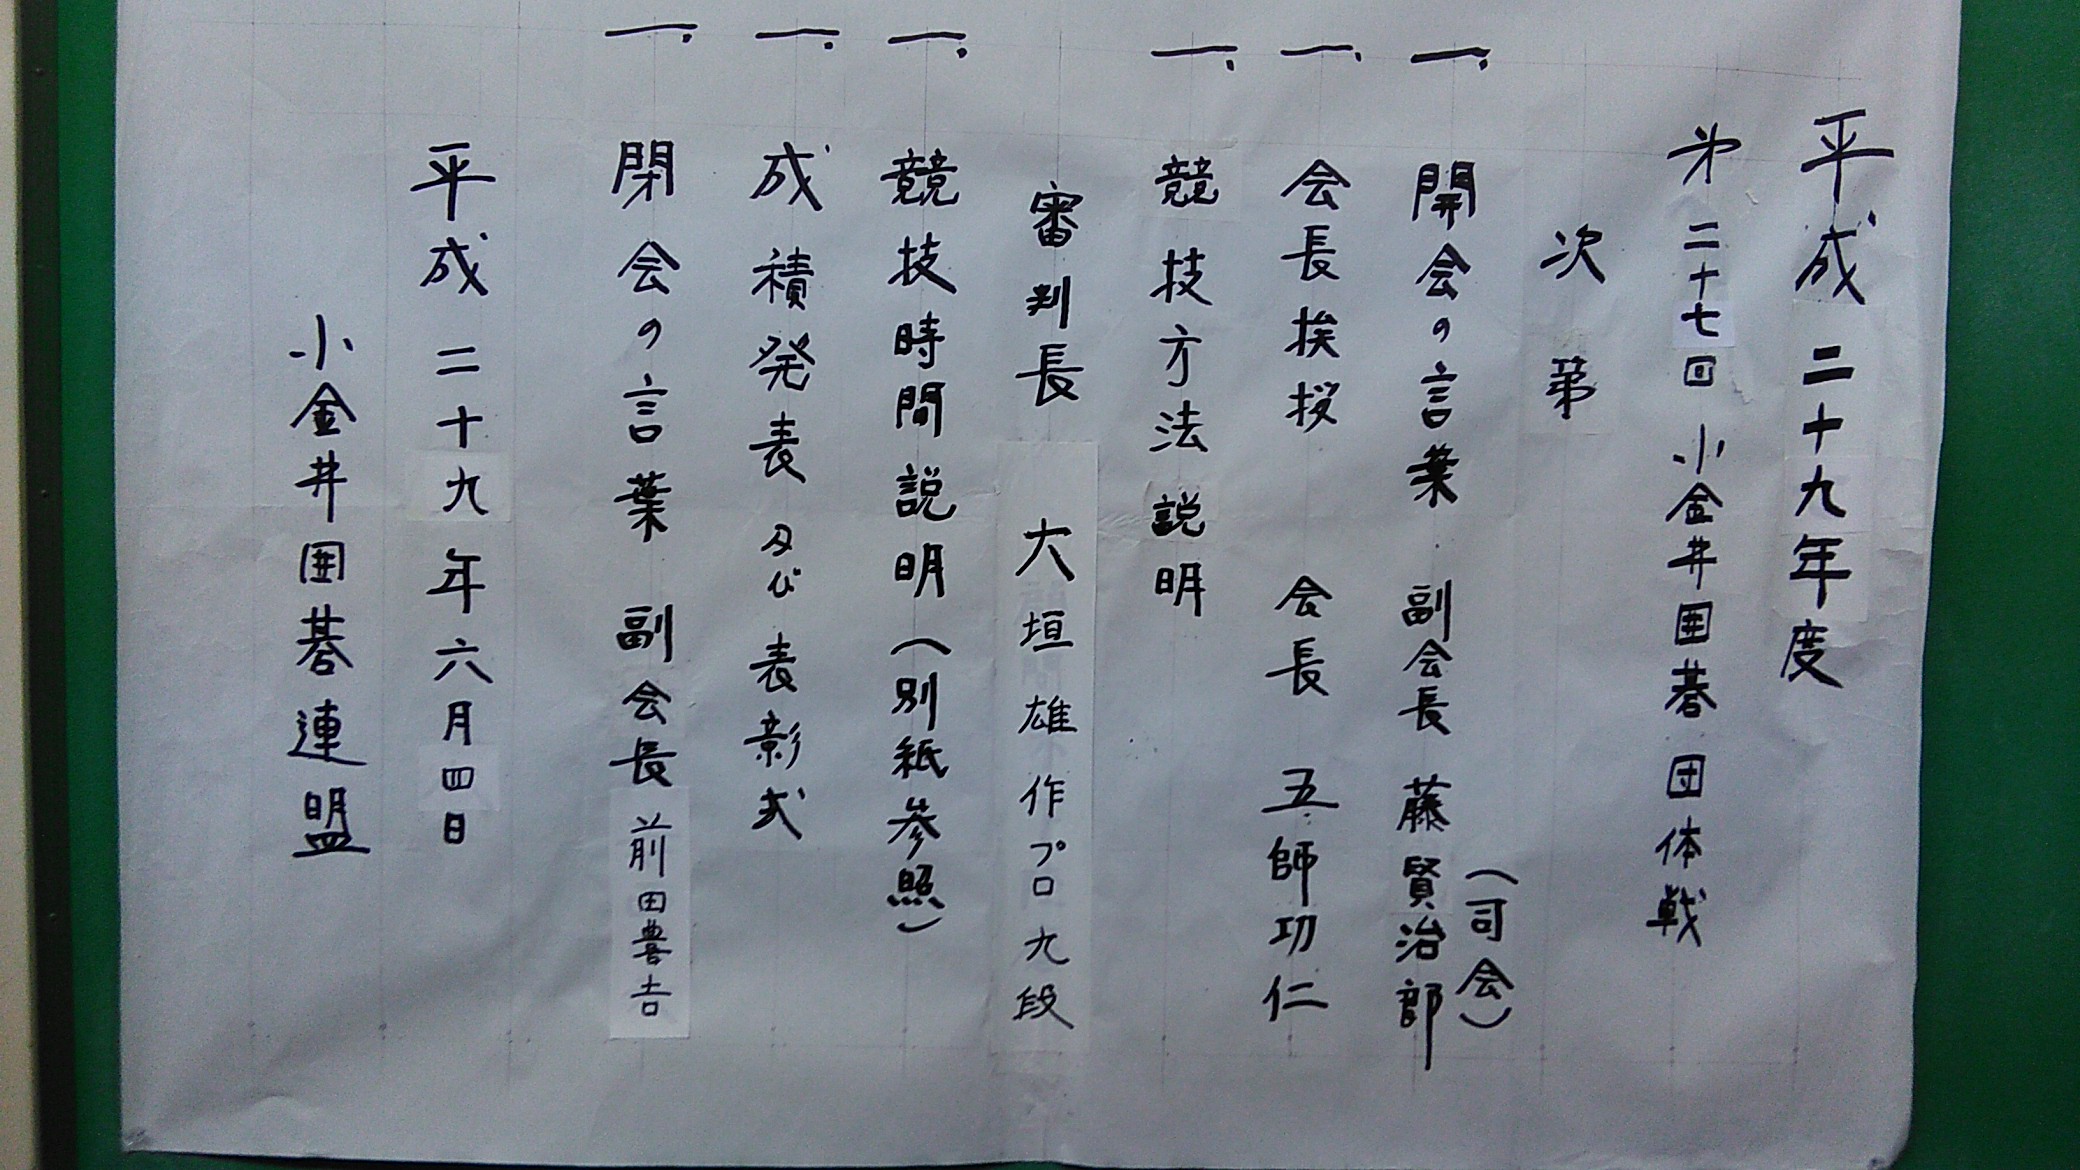 平成二十九年度
第二十七回 小金井囲碁団体戦
次第
一. 開会の言葉 副会長 藤賢治郎
(司会)
一. 会長挨拶 会長 五師功仁
一. 競技方法説明
審判長 大垣雄作プロ九段
一. 競技時間説明(別紙参照)
一. 成績発表及び表彰式
一. 閉会の言葉 副会長 前田豊吉
平成二十九年六月四日
小金井囲碁連盟